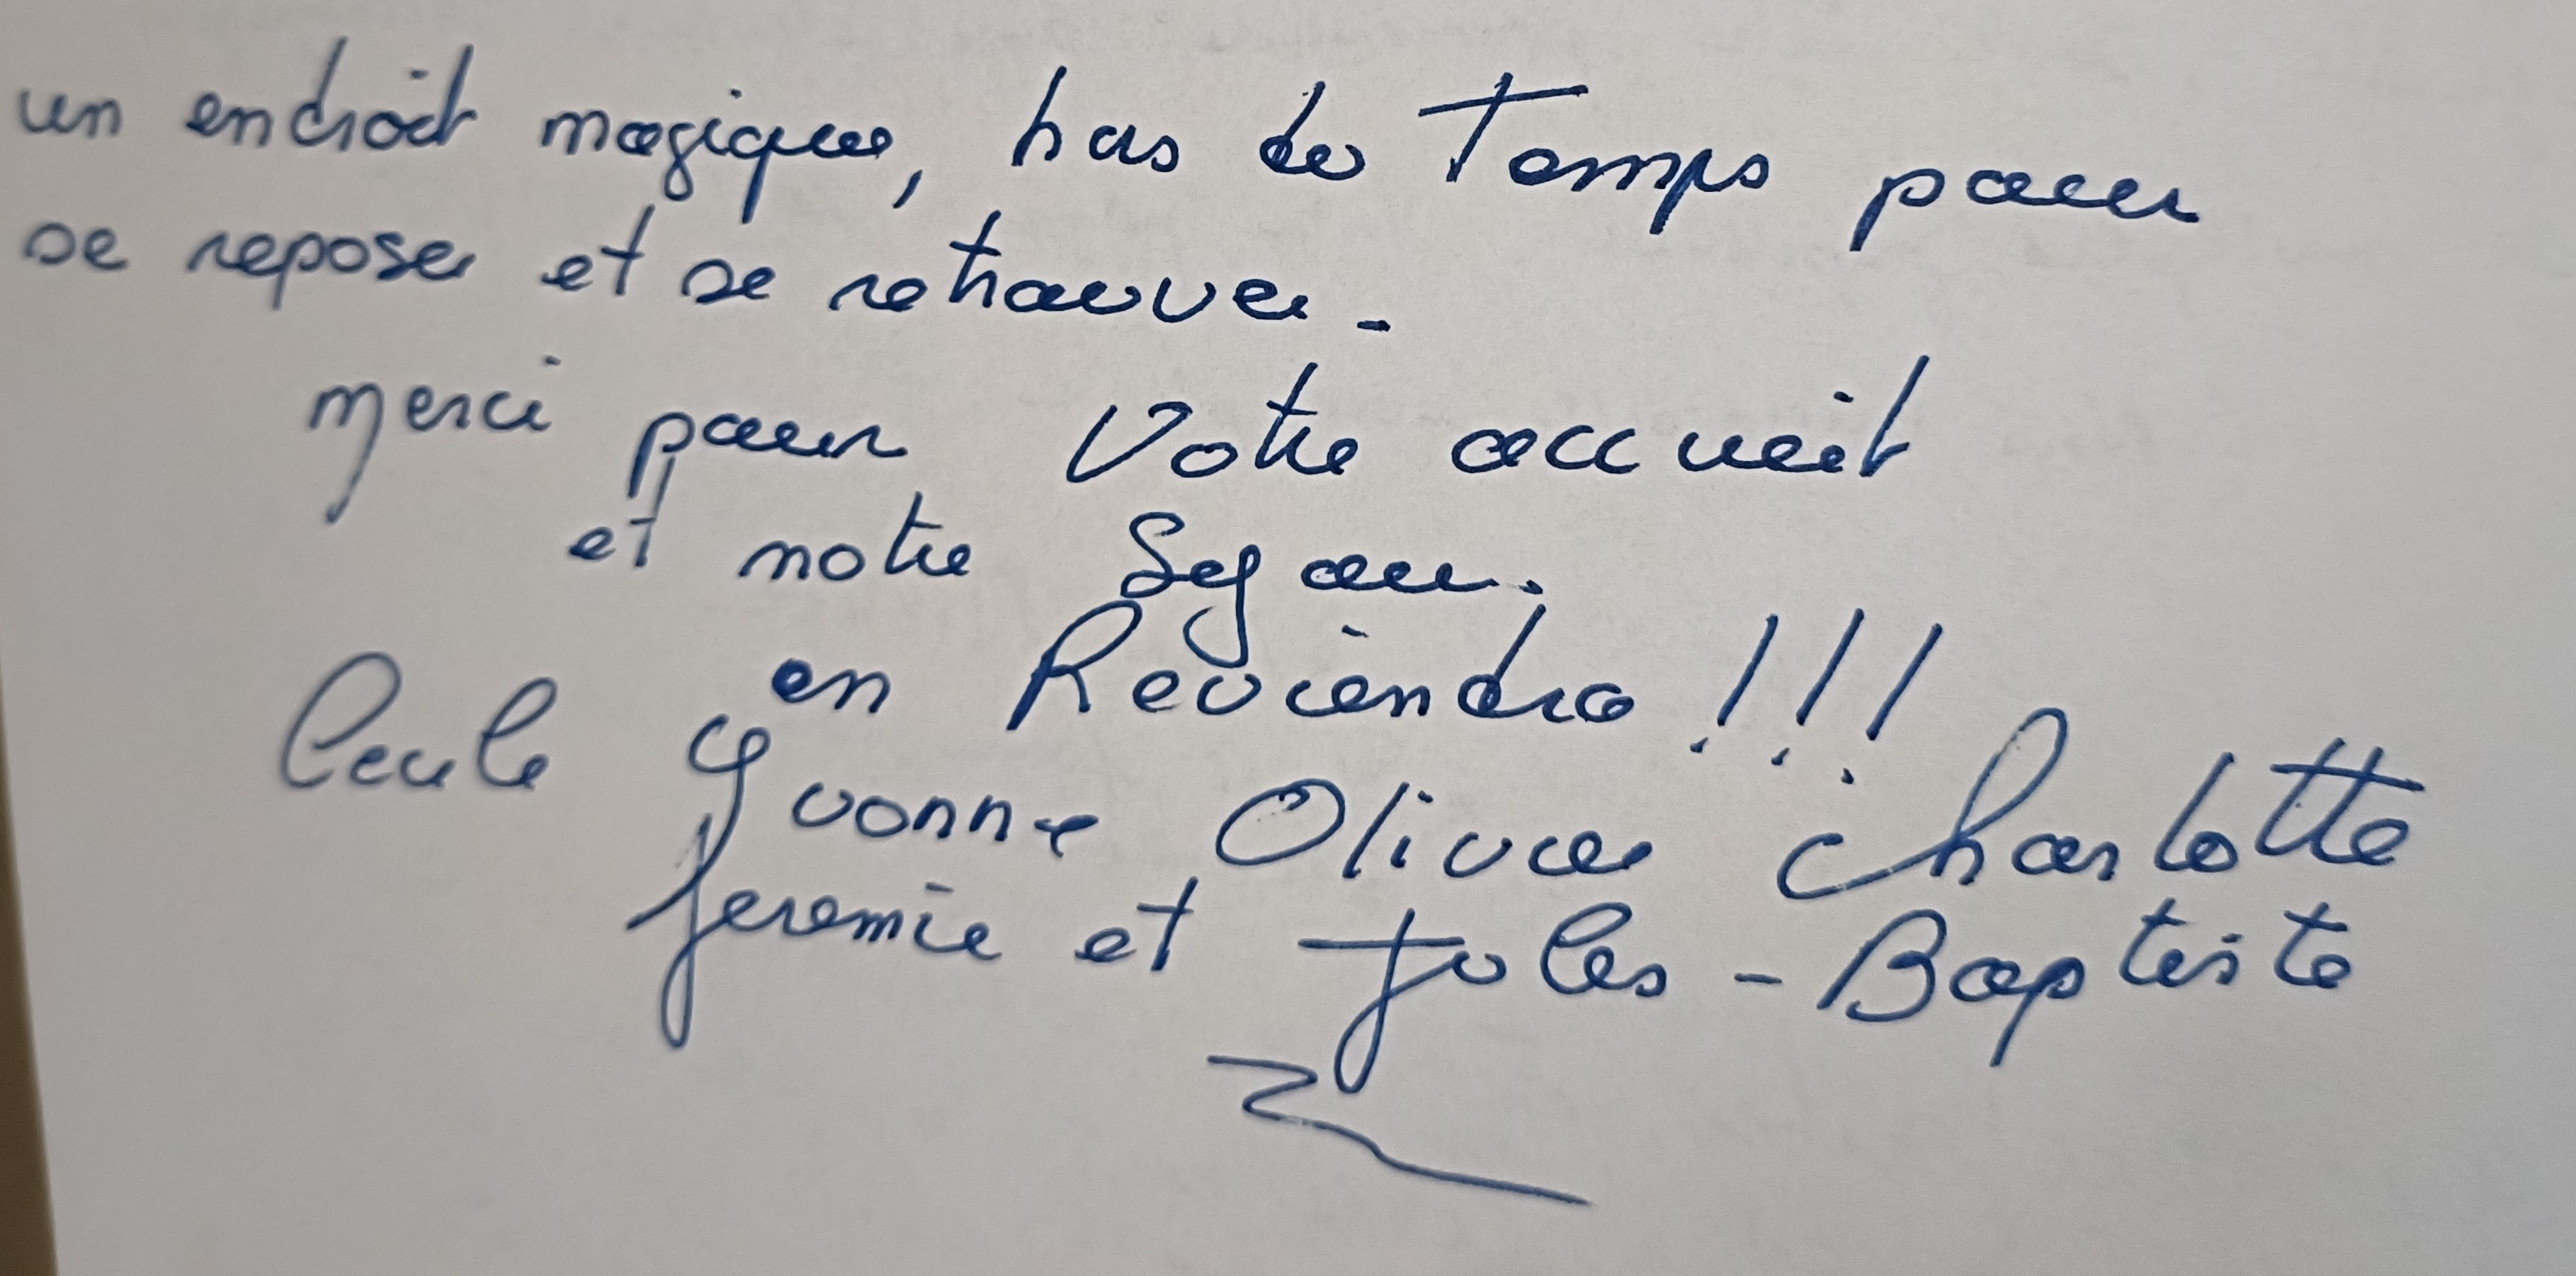 un endroit magique, hors du Temps pour
se reposer et se retrouver.
Merci pour votre accueil
et notre Séjour.
on Reviendra !!!
Cécile Yvonne Olivier Charlotte
Jeremie et Jules-Baptiste